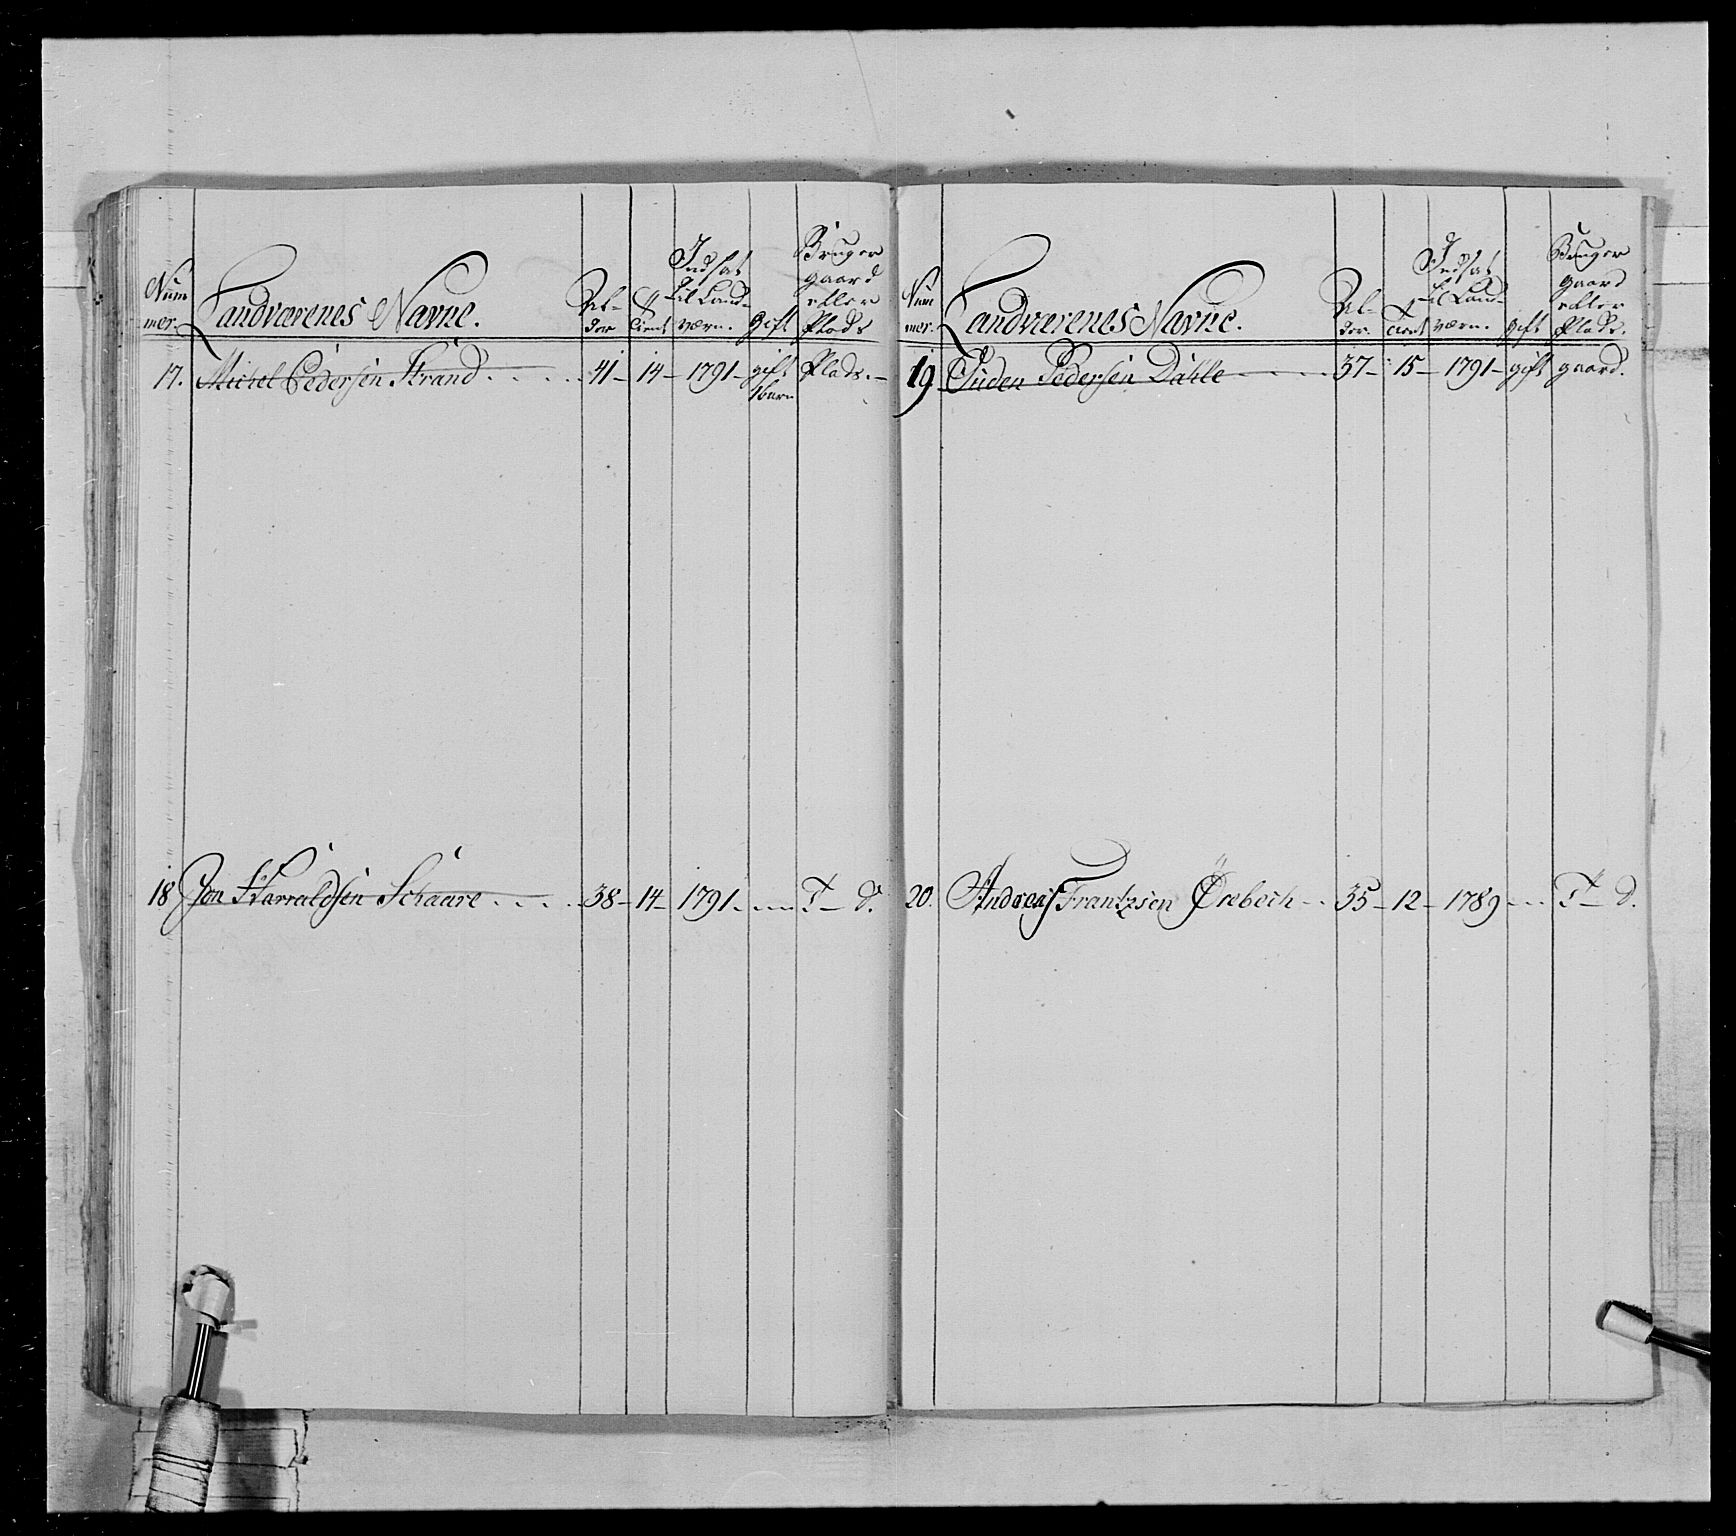 Num
mer.
Landværenes Navne.
Al-
der
Tient
Indsat
til Land-
værn.
gift
Bruger
gaard
eller
Plads
17. Michel Pedersen Strand . . . . . 41 – 14 – 1791 – gift Plads. –
1 barn
18 Jon Harraldsen Schaare . . . . 38 – 14 – 1791 . . . . T – d.
Num
mer.
Landværenes Navne.
Al-
der.
Tient
Indsat
til Land-
værn.
gift
Bruger
gaard
eller
Plads.
19 Pedersen Dahle . . . . 37 – 15 – 1791 – gift gaard.
20. Andreas Frantzsen Örebech . . 35 – 12 – 1789 . . . T – d.